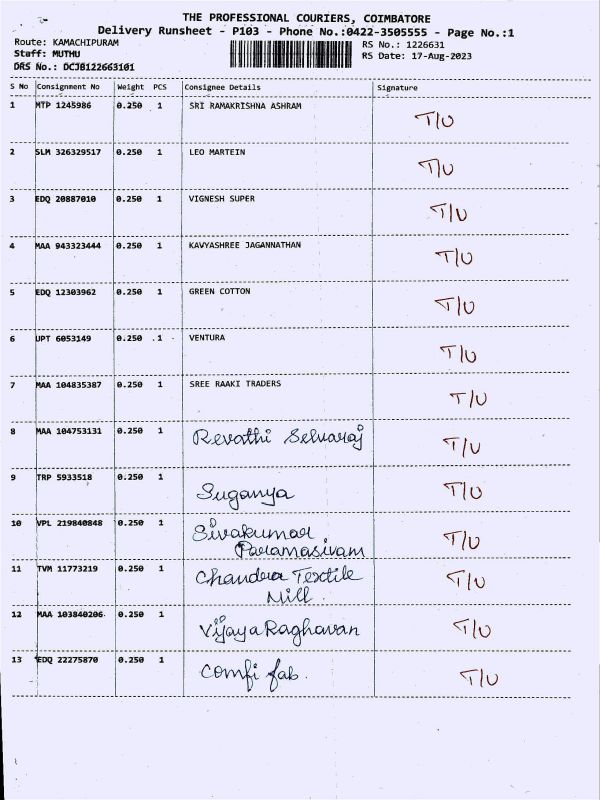 THE PROFESSIONAL COURIERS, COIMBATORE
Delivery Runsheet - P103 - Phone No.:0422-3505555 - Page No.:1
Route: KAMACHIPURAM
RS No.: 1226631
Staff: MUTHU
RS Date: 17-Aug-2023
DRS No.: DCJB122663101
S No Consignment No Weight PCS Consignee Details Signature
1 MTP 1245986 0.250 1 SRI RAMAKRISHNA ASHRAM T/U
2 SLM 326329517 0.250 1 LEO MARTEIN T/U
3 EDQ 20887010 0.250 1 VIGNESH SUPER T/U
4 MAA 943323444 0.250 1 KAVYASHREE JAGANNATHAN T/U
5 EDQ 12303962 0.250 1 GREEN COTTON T/U
6 UPT 6053149 0.250 1 VENTURA T/U
7 MAA 104835387 0.250 1 SREE RAAKI TRADERS T/U
8 MAA 104753131 0.250 1 Revathi Selvaraj T/U
9 TRP 5933518 0.250 1 Suganya T/U
10 VPL 219840848 0.250 1 Sivakumar T/U
Paramasivam
11 TVM 11773219 0.250 1 Chandra Textile T/U
Mill.
12 MAA 103840206 0.250 1 Vijaya Raghavan T/U
13 EDQ 22275870 0.250 1 Comfi fab. T/U